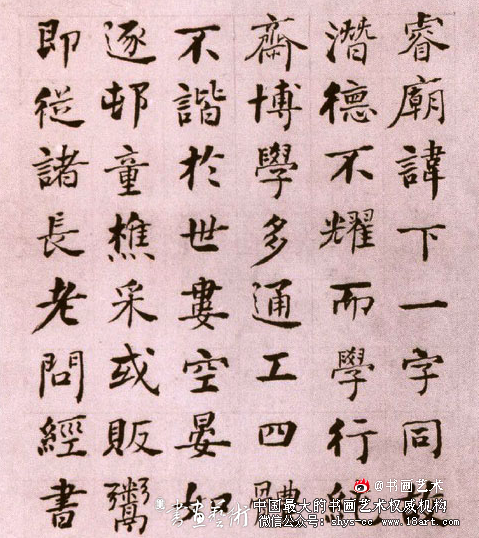 睿廟諱下一字同
潛德不耀而學行
齋博學多通工四體
不諧於世婁空晏如
逐邨童樵采或販鬻
即從諸長老問經書
@书画艺术
書畫藝術
中国最大的书画艺术权威机构
微信公众号: shys-cc www.18art.com